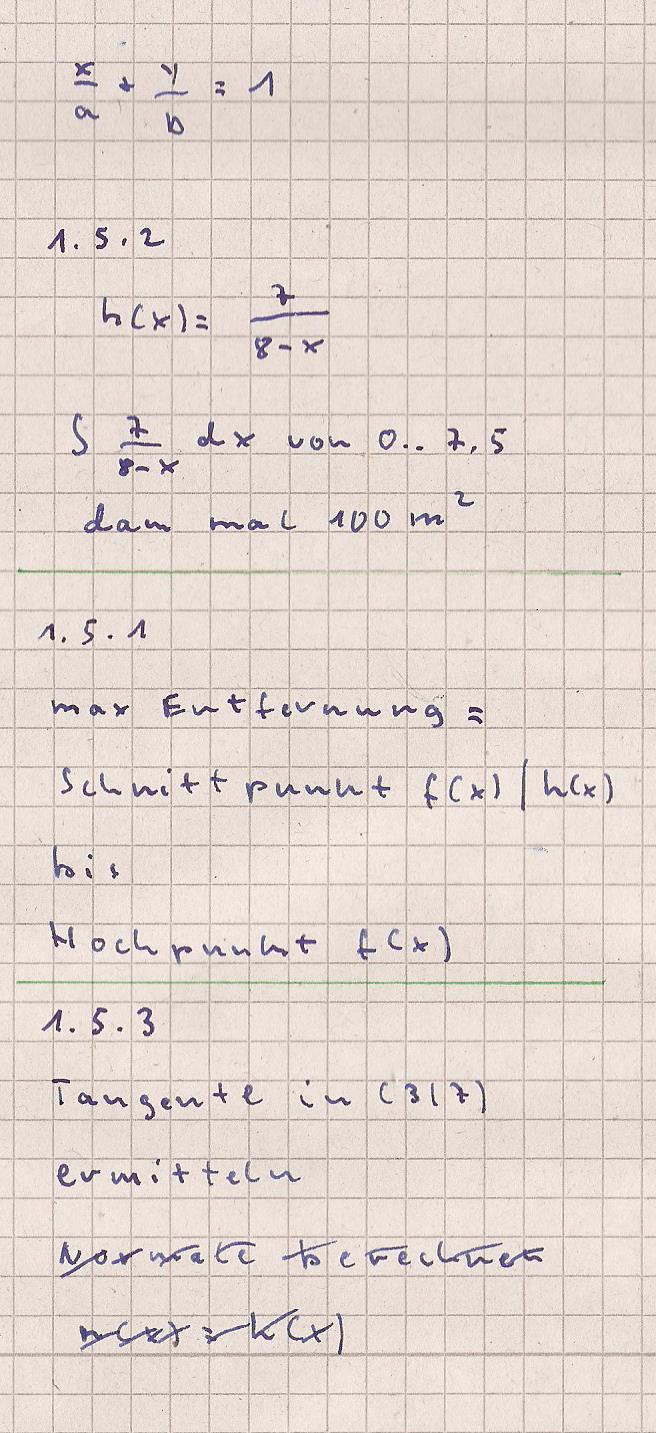 x/a + y/b = 1
1.5.2
h(x) = 7/(8-x)
∫ 7/(8-x) dx von 0.. 7,5
dann mal 100 m²
1.5.1
max Entfernung =
Schnittpunkt f(x) | h(x)
bis
Hochpunkt f(x)
1.5.3
Tangente in (3|7)
ermitteln
Normale berechnen
n(x) = k(x)